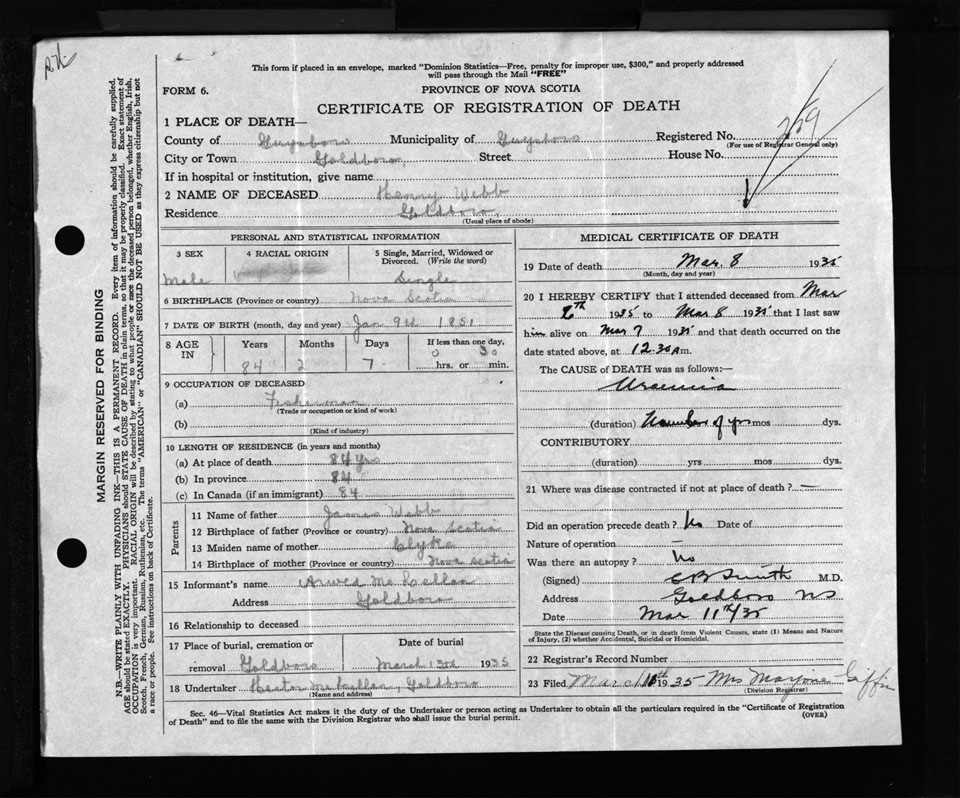 This form if placed in an envelope, marked "Dominion Statistics—Free, penalty for improper use, $300," and properly addressed
will pass through the Mail "FREE"
FORM 6.
PROVINCE OF NOVA SCOTIA
CERTIFICATE OF REGISTRATION OF DEATH
259
1 PLACE OF DEATH—
County of Guysboro Municipality of Guysboro Registered No.
(For use of Registrar General only)
City or Town Goldboro, Street House No.
If in hospital or institution, give name
2 NAME OF DECEASED Henry Webb
Residence Goldboro,
(Usual place of abode)
PERSONAL AND STATISTICAL INFORMATION
3 SEX 4 RACIAL ORIGIN 5 Single, Married, Widowed or Divorced. (Write the word)
Male Single
6 BIRTHPLACE (Province or country) Nova Scotia
7 DATE OF BIRTH (month, day and year) Jan 9th 1851
8 AGE IN Years Months Days If less than one day,
84 2 7 0 hrs. or 30 min.
9 OCCUPATION OF DECEASED
(a) Fisherman
(Trade or occupation or kind of work)
(b)
(Kind of industry)
10 LENGTH OF RESIDENCE (in years and months)
(a) At place of death 84 yrs
(b) In province 84
(c) In Canada (if an immigrant) 84
Parents
11 Name of father James Webb
12 Birthplace of father (Province or country) Nova Scotia
13 Maiden name of mother Clyke
14 Birthplace of mother (Province or country) Nova Scotia
15 Informant's name McLellan
Address Goldboro
16 Relationship to deceased
17 Place of burial, cremation or Date of burial
removal Goldboro March 13th 1935
18 Undertaker McLellan, Goldboro
(Name and address)
MEDICAL CERTIFICATE OF DEATH
19 Date of death Mar. 8 1935
(Month, day and year)
20 I HEREBY CERTIFY that I attended deceased from Mar
6th 1935 to Mar 8 1935 that I last saw
him alive on Mar 7 1935 and that death occurred on
date stated above, at 12.30 A m.
The CAUSE of DEATH was as follows:—
Uraemia
(duration) Number of yrs mos dys.
CONTRIBUTORY
(duration) yrs mos dys.
21 Where was disease contracted if not at place of death? —
Did an operation precede death? No Date of
Nature of operation —
Was there an autopsy? No
(Signed) E B Smith M.D.
Address Goldboro NS
Date Mar 11th/35
State the Disease causing Death, or in death from Violent Causes, state (1) Means and Nature
of Injury, (2) whether Accidental, Suicidal or Homicidal.
22 Registrar's Record Number
23 Filed March 1935 Mrs Marjorie Giffin
(Division Registrar)
Sec. 46—Vital Statistics Act makes it the duty of the Undertaker or person acting as Undertaker to obtain all the particulars required in the "Certificate of Registration
of Death" and to file the same with the Division Registrar who shall issue the burial permit.
(OVER)
MARGIN RESERVED FOR BINDING
N.B.—WRITE PLAINLY WITH UNFADING INK—THIS IS A PERMANENT RECORD. Every item of information should be carefully supplied.
AGE should be stated EXACTLY. PHYSICIANS should STATE CAUSE OF DEATH in plain terms, so that it may be properly classified. Exact statement of
OCCUPATION is very important. RACIAL ORIGIN will be described by stating to what people or race the deceased person belonged, whether English, Irish,
Scotch, French, German, Russian, Ruthenian, etc. The terms "AMERICAN" or "CANADIAN" SHOULD NOT BE USED as they express citizenship but not
a race or people. See instructions on back of Certificate.